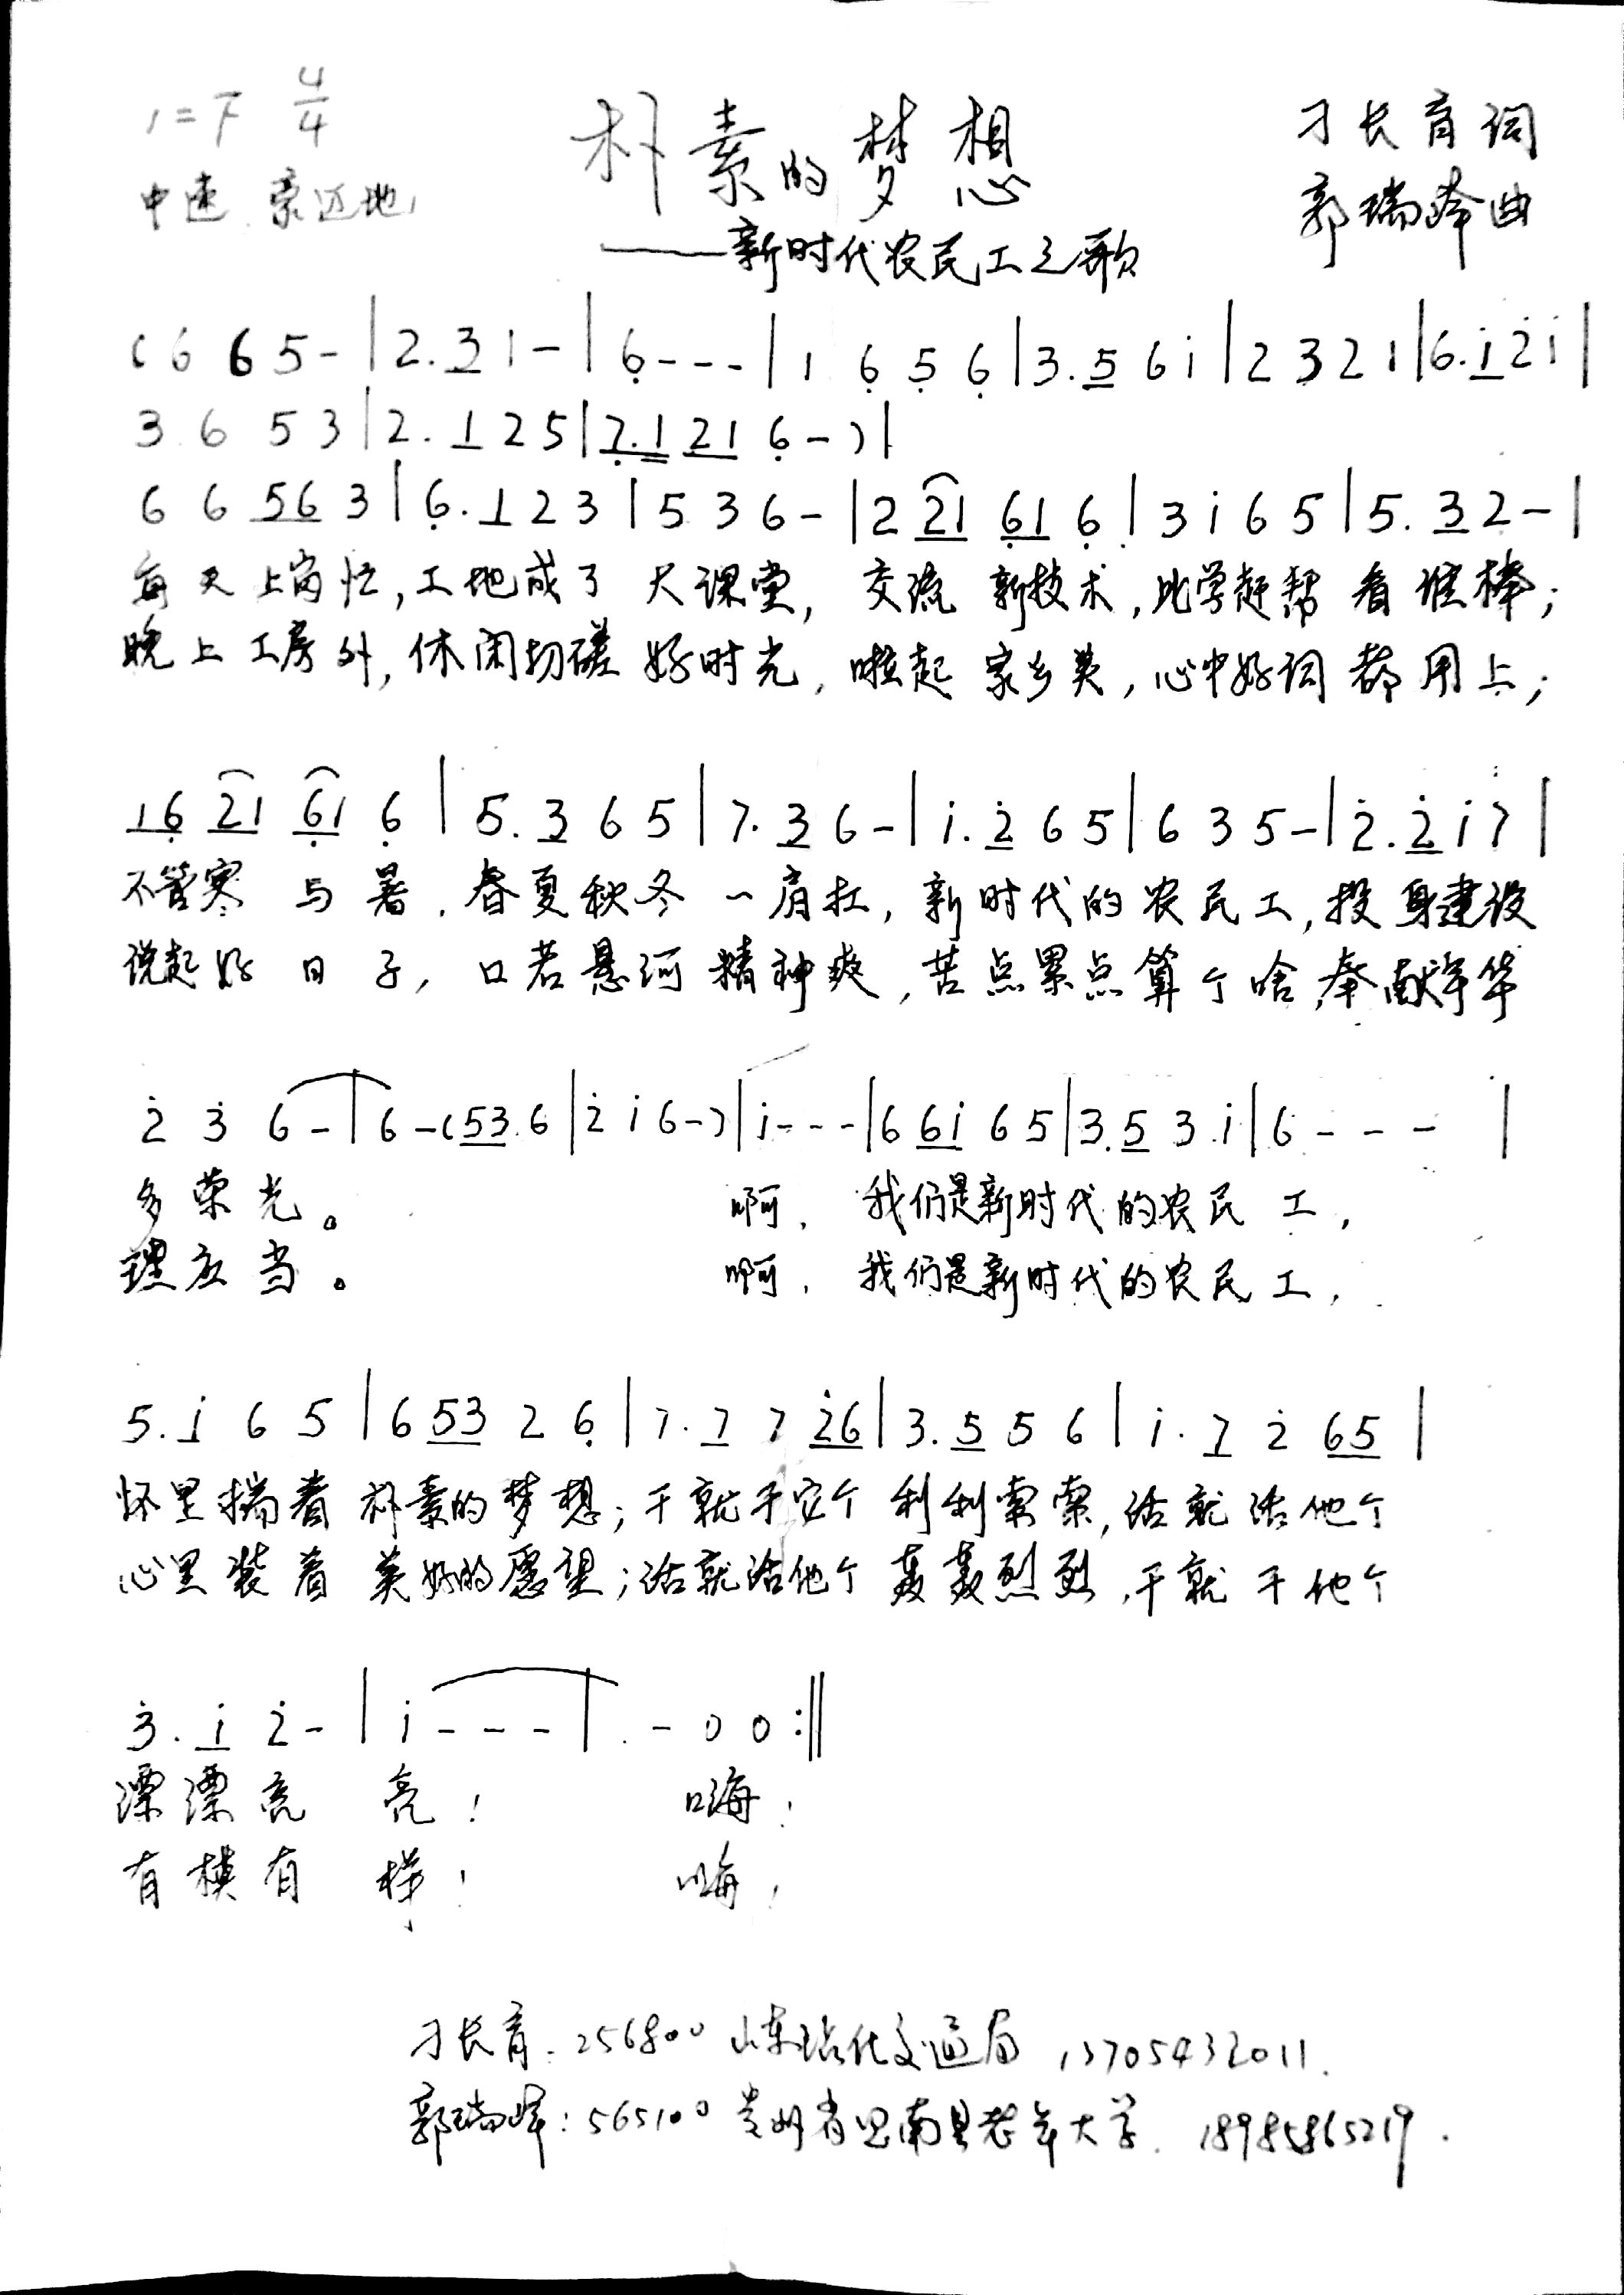 1=F 4/4
朴素的梦想
刁长育词
中速 豪迈地
郭瑞峰曲
——新时代农民工之歌
(6 6 6 5 - | 2. 3 1 - | 6 - - - | 1 6 5 6 | 3. 5 6 i | 2 3 2 1 | 6. i 2 i |
3 6 5 3 | 2. 1 2 5 | 7. 1 2 1 6 - ) |
6 6 5 6 3 | 6. 1 2 3 | 5 3 6 - | 2 2 1 6 1 6 | 3 i 6 5 | 5. 3 2 - |
每天上岗忙,工地成了大课堂,交流新技术,比学赶帮看谁棒;
晚上工房外,休闲切磋好时光,啦起家乡美,心中好词都用上;
1 6 2 1 6 1 6 | 5. 3 6 5 | 7. 3 6 - | i. 2 6 5 | 6 3 5 - | 2. 2 i 7 |
不管寒与暑,春夏秋冬一肩扛,新时代的农民工,投身建设
说起好日子,口若悬河精神爽,苦点累点算个啥,奉献年华
2 3 6 - | 6 - (5 3 6 | 2 i 6 - ) | i - - - | 6 6 i 6 5 | 3. 5 3 i | 6 - - - |
多荣光。 啊,我们是新时代的农民工,
理应当。 啊,我们是新时代的农民工,
5. i 6 5 | 6 5 3 2 6 | 7. 7 7 2 6 | 3. 5 5 6 | i. 7 2 6 5 |
怀里揣着朴素的梦想;干就干它个利利索索,活就活他个
心里装着美好的愿望;活就活他个轰轰烈烈,干就干他个
3. i 2 - | i - - - | - 0 0 :‖
漂漂亮亮! 嗨!
有模有样! 嗨!
刁长育:256800 山东沾化交通局 13705432011.
郭瑞峰:565100 贵州省思南县老年大学 18985865219.